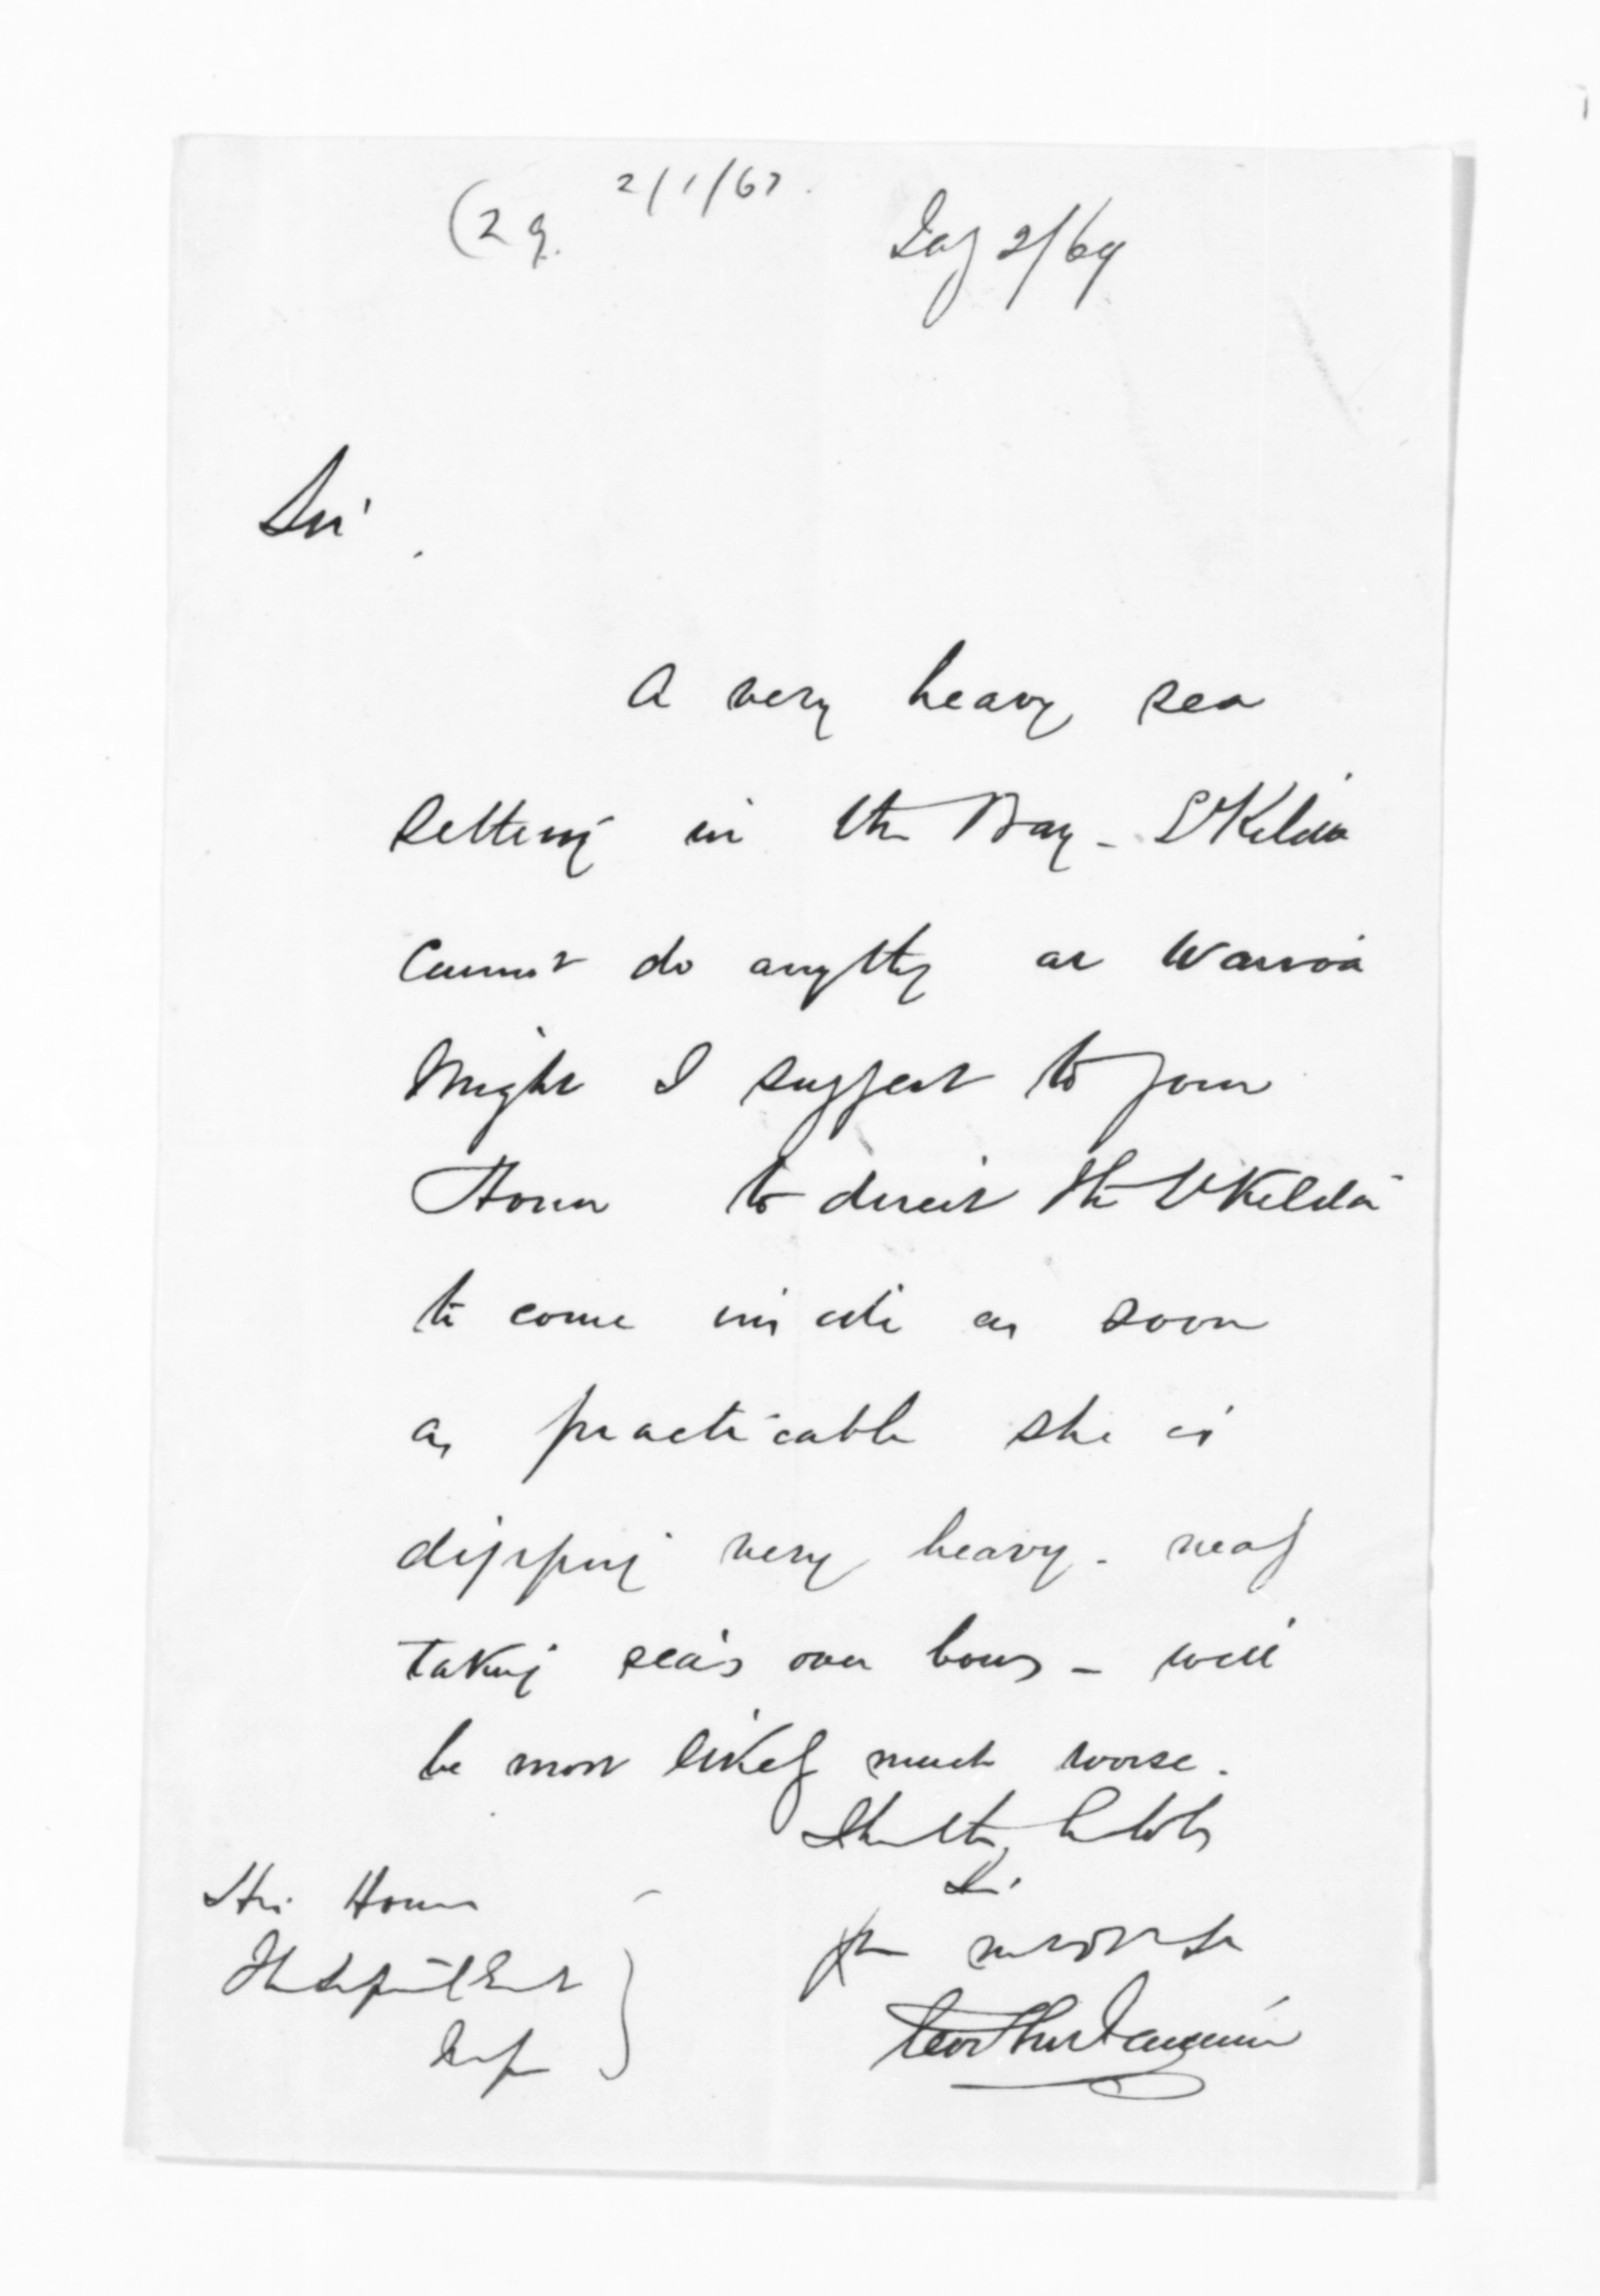 (29.
2/1/67.
Jay 2/69
Sir
A very heavy sea
setting in the Bay - St Kilda
Cannot do anything at Wairoa
Might I suggest to your
Honor to direct the St Kilda
to come inside as soon
as practicable she is
dipping very heavy - nearly
taking sea's over bows - will
be most likely much worse.
I have the honor to be
Sir
Your
His Honor
The Superintendent